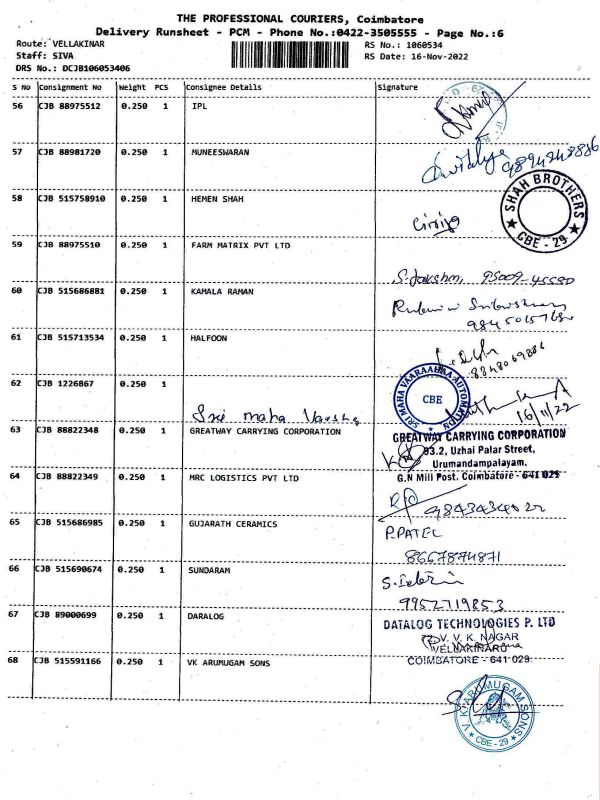 THE PROFESSIONAL COURIERS, Coimbatore
Delivery Runsheet - PCM - Phone No.:0422-3505555 - Page No.:6
Route: VELLAKINAR
RS No.: 1060534
Staff: SIVA
RS Date: 16-Nov-2022
DRS No.: DCJB106053406
S No Consignment No Weight PCS Consignee Details Signature
56 CJB 88975512 0.250 1 IPL
57 CJB 88981720 0.250 1 MUNEESWARAN
9894248886
58 CJB 515758910 0.250 1 HEMEN SHAH
SHAH BROTHERS
CBE - 29
59 CJB 88975510 0.250 1 FARM MATRIX PVT LTD
60 CJB 515686881 0.250 1 KAMALA RAMAN
61 CJB 515713534 0.250 1 HALFOON
8848069886
62 CJB 1226867 0.250 1
SRI MAHA VAARAAHAA AUTOMATION
CBE
Sri maha
16/11/22
63 CJB 88822348 0.250 1 GREATWAY CARRYING CORPORATION
GREATWAY CARRYING CORPORATION
93.2, Uzhai Palar Street,
Urumandampalayam,
G.N Mill Post. Coimbatore - 641 029
64 CJB 88822349 0.250 1 MRC LOGISTICS PVT LTD
65 CJB 515686985 0.250 1 GUJARATH CERAMICS
P.PATEL
8667874871
66 CJB 515690674 0.250 1 SUNDARAM
9952719853
67 CJB 89000699 0.250 1 DARALOG
DATALOG TECHNOLOGIES P. LTD
V. V. K. NAGAR
COIMBATORE - 641 029.
68 CJB 515591166 0.250 1 VK ARUMUGAM SONS
V. K. ARUMUGAM SONS
CBE - 29